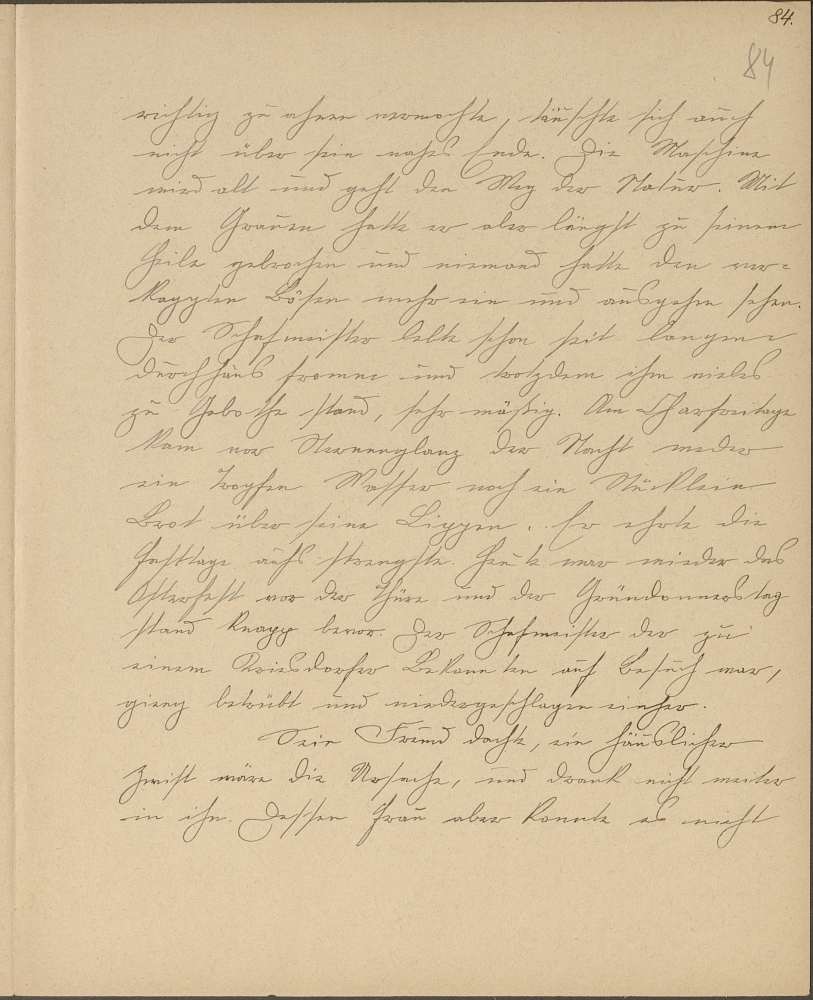 84.
84
richtig zu ahnen vermochte, täuschte sich auch
nicht über sein nahes Ende. Die Maschine
wird alt und geht den Weg der Natur. Mit
dem Grauen hatte er aber längst zu seinem
Heile gebrochen und niemand hatte den ver-
kappten Bösen mehr ein und ausgehen sehen.
Der Schafmeister lebte schon seit langem
durchaus fromm und trotzdem ihm vieles
zu Gebothe stand, sehr mäßig. Am Charfreitage
kam vor Sternenglanz der Nacht weder
ein Tropfen Wasser noch ein Stücklein
Brot über seine Lippen. Er ehrte die
Festtage aufs strengste. Heute war wieder das
Osterfest vor der Thüre und der Gründonnerstag
stand knapp bevor. Der Schafmeister der zu
einem Kriesdorfer Bekannten auf Besuch war,
gieng betrübt und niedergeschlagen einher.
Sein Freund dachte, ein häuslicher
Zwist wäre die Ursache, und drank nicht weiter
in ihn. Dessen Frau aber konnte es nicht